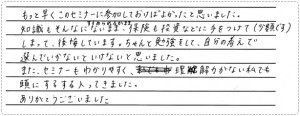 もっと早くこのセミナーに参加しておけばよかったと思いました。
知識もそんなにないまま、保険も投資などに手をつけて(少額ですが)
しまって、後悔しています。ちゃんと勉強をして、自分の考えで
選んでいかないといけないと思いました。
また、セミナーもわかりやすく、理解力がない私でも
頭にすうすう入ってきました。
ありがとうございました